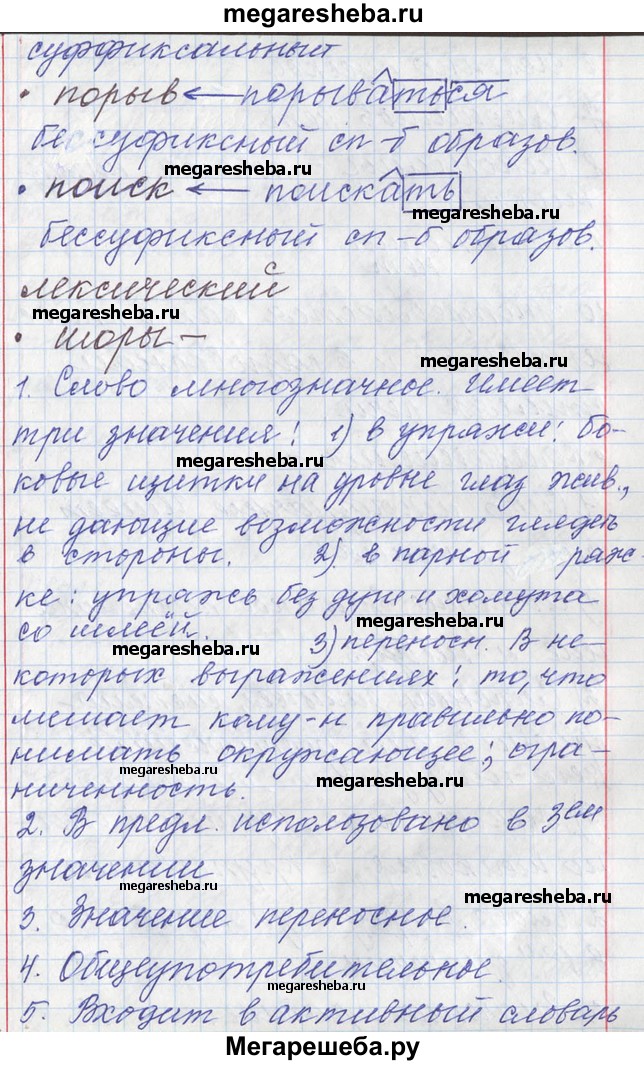 megaresheba.ru
суффиксальный
• порыв ← порываться
бессуфиксный сп-б образов.
megaresheba.ru
• поиск ← поискать
megaresheba.ru
бессуфиксный сп-б образов.
лексический
megaresheba.ru
• шоры –
megaresheba.ru
1. Слово многозначное. Имеет
три значения: 1) в упряжи: бо-
megaresheba.ru
ковые щитки на уровне глаз жив.,
не дающие возможности глядеть
в стороны. 2) в парной ряж-
ке: упряжь без дуги и хомута
со шлеёй. 3) переносн. В не-
megaresheba.ru
которых выражениях: то, что
мешает кому-н правильно по-
нимать окружающее; огра-
megaresheba.ru
ниченность.
megaresheba.ru
2. В предл. использовано в 3ем
значении
megaresheba.ru
megaresheba.ru
3. Значение переносное.
4. Общеупотребительное.
megaresheba.ru
5. Входит в активный словарь
Мегарешеба.ру